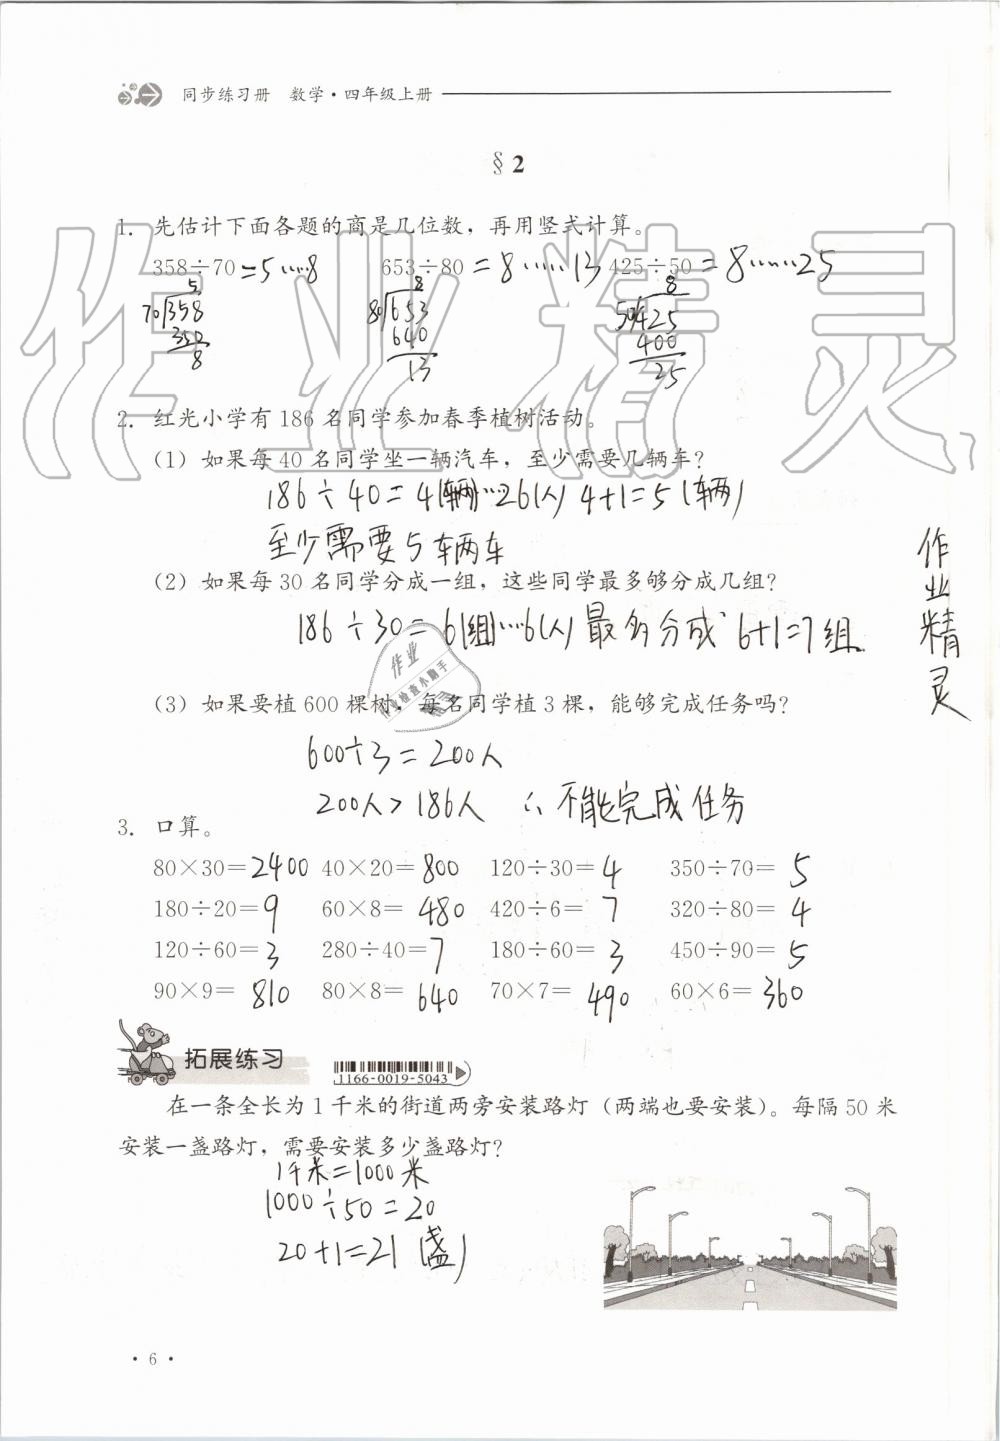 同步练习册 数学·四年级上册
§2
1. 先估计下面各题的商是几位数，再用竖式计算。
358÷70=5……8 653÷80=8……13 425÷50=8……25
5 8 8
70 358 80 653 50 425
350 640 400
8 13 25
2. 红光小学有 186 名同学参加春季植树活动。
（1）如果每 40 名同学坐一辆汽车，至少需要几辆车？
186÷40=4(辆)…26(人) 4+1=5(辆)
至少需要5车两车
（2）如果每 30 名同学分成一组，这些同学最多够分成几组？
186÷30=6(组)…6(人) 最多分成 6+1=7组
（3）如果要植 600 棵树，每名同学植 3 棵，能够完成任务吗？
600÷3=200人
200人>186人 ∴不能完成任务
3. 口算。
80×30=2400 40×20=800 120÷30=4 350÷70=5
180÷20=9 60×8=480 420÷6=7 320÷80=4
120÷60=3 280÷40=7 180÷60=3 450÷90=5
90×9=810 80×8=640 70×7=490 60×6=360
拓展练习
1166-0019-5043
在一条全长为 1 千米的街道两旁安装路灯（两端也要安装）。每隔 50 米
安装一盏路灯，需要安装多少盏路灯？
1千米=1000米
1000÷50=20
20+1=21(盏)
·6·
作业精灵
作业精灵
作业
作业检查小助手